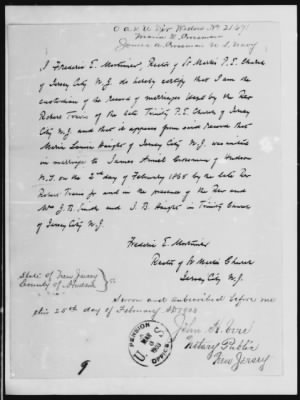 Navy Wid Widow No 21691
Maria L. Crosman
James A. Crosman U.S. Navy
I Frederic E. Mortimer, Rector of St Mark's P.E. Church
of Jersey City N.J. do hereby certify that I am the
custodian of the record of marriages kept by the Rev
Robert Travis of the late Trinity P.E. Church of Jersey
City N.J. and that it appears from said Records that
Maria Louise Haight of Jersey City N.J. was united
in marriage to James Crosman of Hudson
N.J. on the 2nd day of February 1865 by the late Rev
Robert Travis Jr and in the presence of the Rev and
Mrs J.B. Smith and J.B. Haight in Trinity Church
of Jersey City N.J.
Frederic E. Mortimer
Rector of St Mark's Church
Jersey City N.J.
State of New Jersey
County of Hudson } SS
Sworn and subscribed before me
this 25th day of February
U.S. PENSION OFFICE MAR
John
Notary Public
New Jersey
9